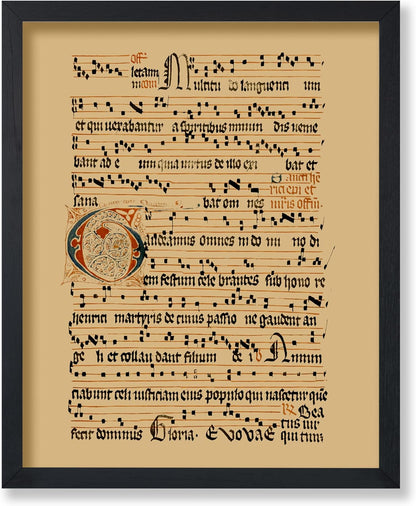 off
letam Multitu do languenti um
m com
et qui vexabantur a spiritibus inmun dis veniebant ad e um quia virtus de illo exi bat et
sana bat om nes
Sancti henrici epi et mris offm
Gaudeamus omnes in do mi no di
em festum cele brantes sub hono re
henrici martyris de cuius passio ne gaudent an
ge li et collau dant filium de i v Annun
ciabunt celi iusticiam eius populo qui nascetur que
fecit dominus Gloria . EVOVAE R Bea
tus vir
qui tum